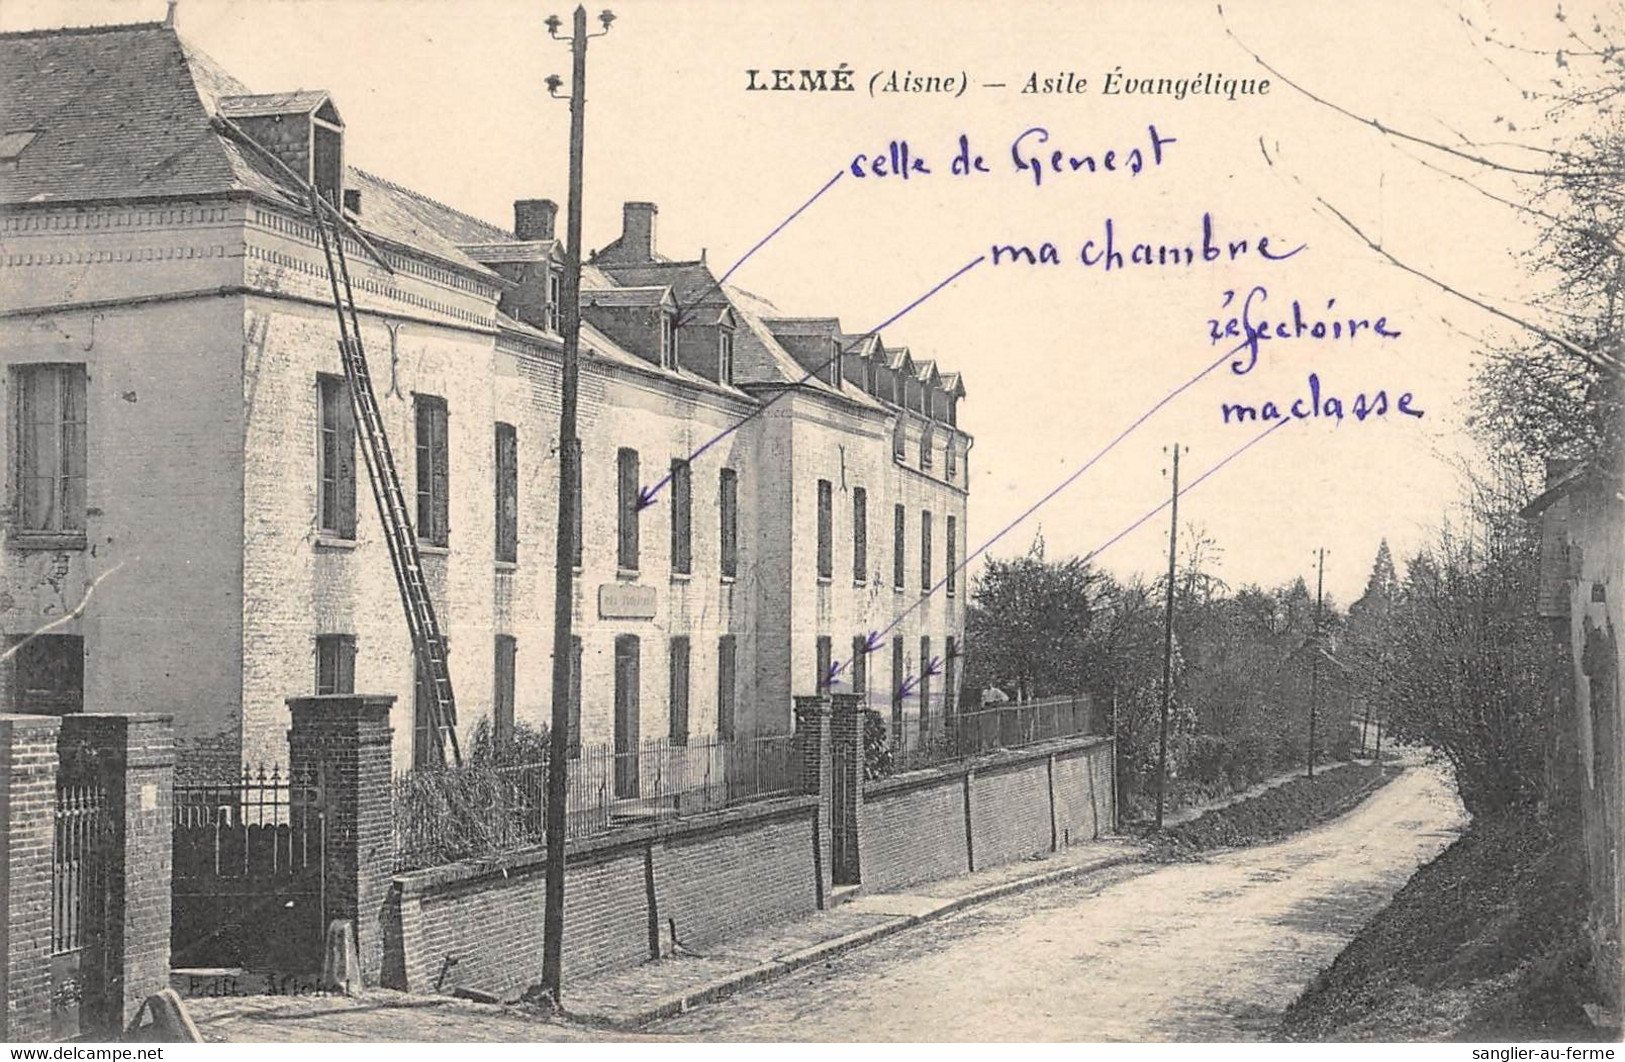 LEMÉ (Aisne) — Asile Évangélique
celle de Genest
ma chambre
réfectoire
ma classe
Edit. Michel
www.delcampe.net
sanglier-au-ferme